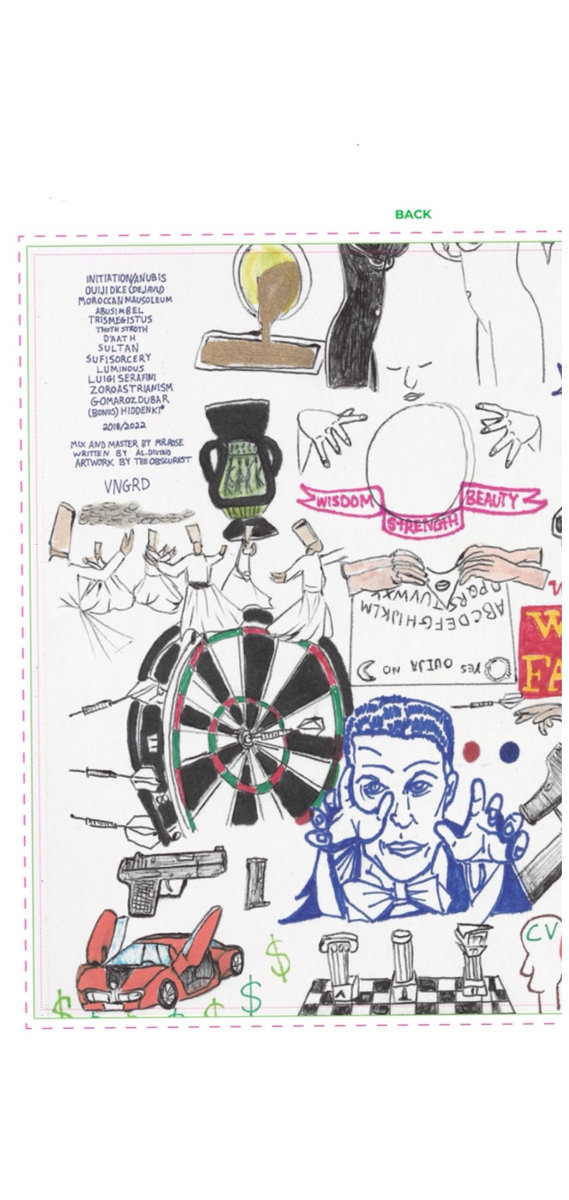 BACK
INITIATION/ANUBIS
OUIJI DKE (DEJAVU)
MOROCCAN MAUSOLEUM
ABUSIMBEL
TRISMEGISTUS
THOTH STROTH
D'AATH
SULTAN
SUFISORCERY
LUMINOUS
LUIGI SERAFINI
ZOROASTRIANISM
GOMAROZDUBAR
(BONUS) HIDDENKI*
2018/2022
MIX AND MASTER BY MR.ROSE
WRITTEN BY AL.DIVINO
ARTWORK BY THEOBSCURIST
VNGRD
WISDOM
STRENGTH
BEAUTY
ABCDEFGHIJKLM
NOPQRSTUVWXYZ
YES OUIJA NO
W
FA
CV
$
$
$